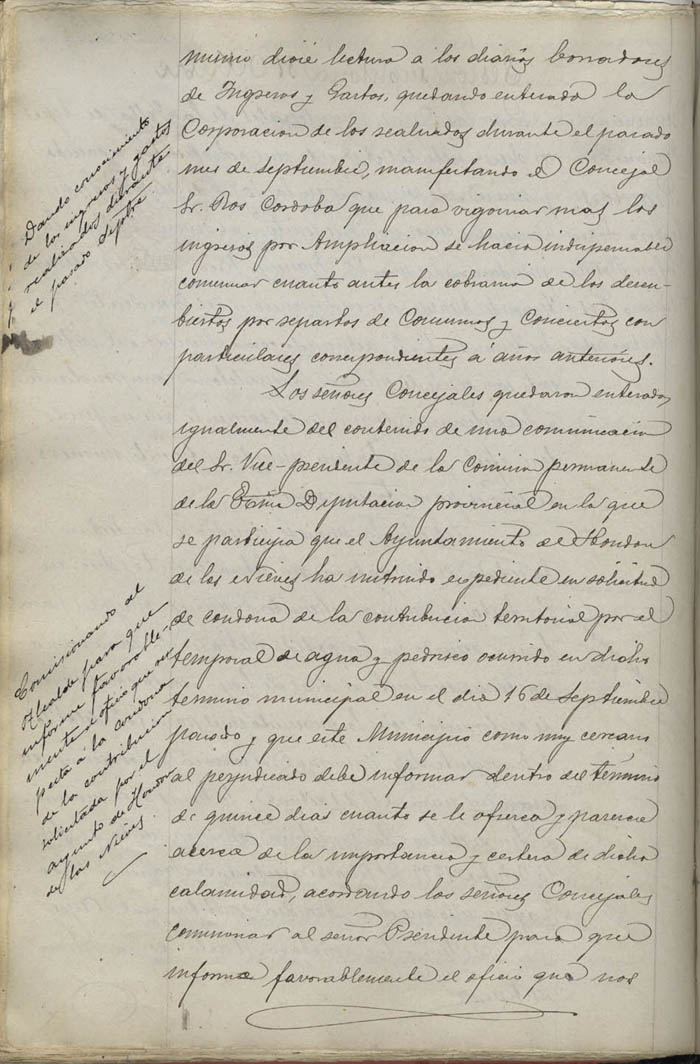 Dando conocimiento
de los ingresos y gastos
realizados durante
el pasado Septbre
mismo dióse lectura a los diarios borradores
de Ingresos y Gastos, quedando enterada la
Corporacion de los realizados durante el pasado
mes de Septiembre, manifestando el Concejal
Sr. Ros Cordoba que para vigorizar mas los
ingresos por Ampliacion se hacia indispensable
comenzar cuanto antes la cobranza de los descu-
biertos por repartos de Consumos y Conciertos con
particulares correspondientes á años anteriores.
Los señores Concejales quedaron enterados
igualmente del contenido de una comunicacion
del Sr. Vice-presidente de la Comision permanente
de la Exma Diputacion provincial en la que
se participa que el Ayuntamiento de Hondon
de las Nieves ha instruido expediente en solicitud
de condona de la contribucion territorial por el
temporal de agua y pedrisco ocurrido en dicho
termino municipal en el dia 16 de Septiembre
pasado y que este Municipio como muy cercano
al perjudicado debe informar dentro del término
de quince dias cuanto se le ofrezca y parezca
acerca de la importancia y certeza de dicha
calamidad, acordando los señores Concejales
comisionar al señor Presidente para que
informe favorablemente el oficio que nos
Comisionando al
Alcalde para que
informe favorable-
mente el oficio que res-
pecta a la condona
de la contribucion
solicitada por el
ayunto de Hondon
de las Nieves.